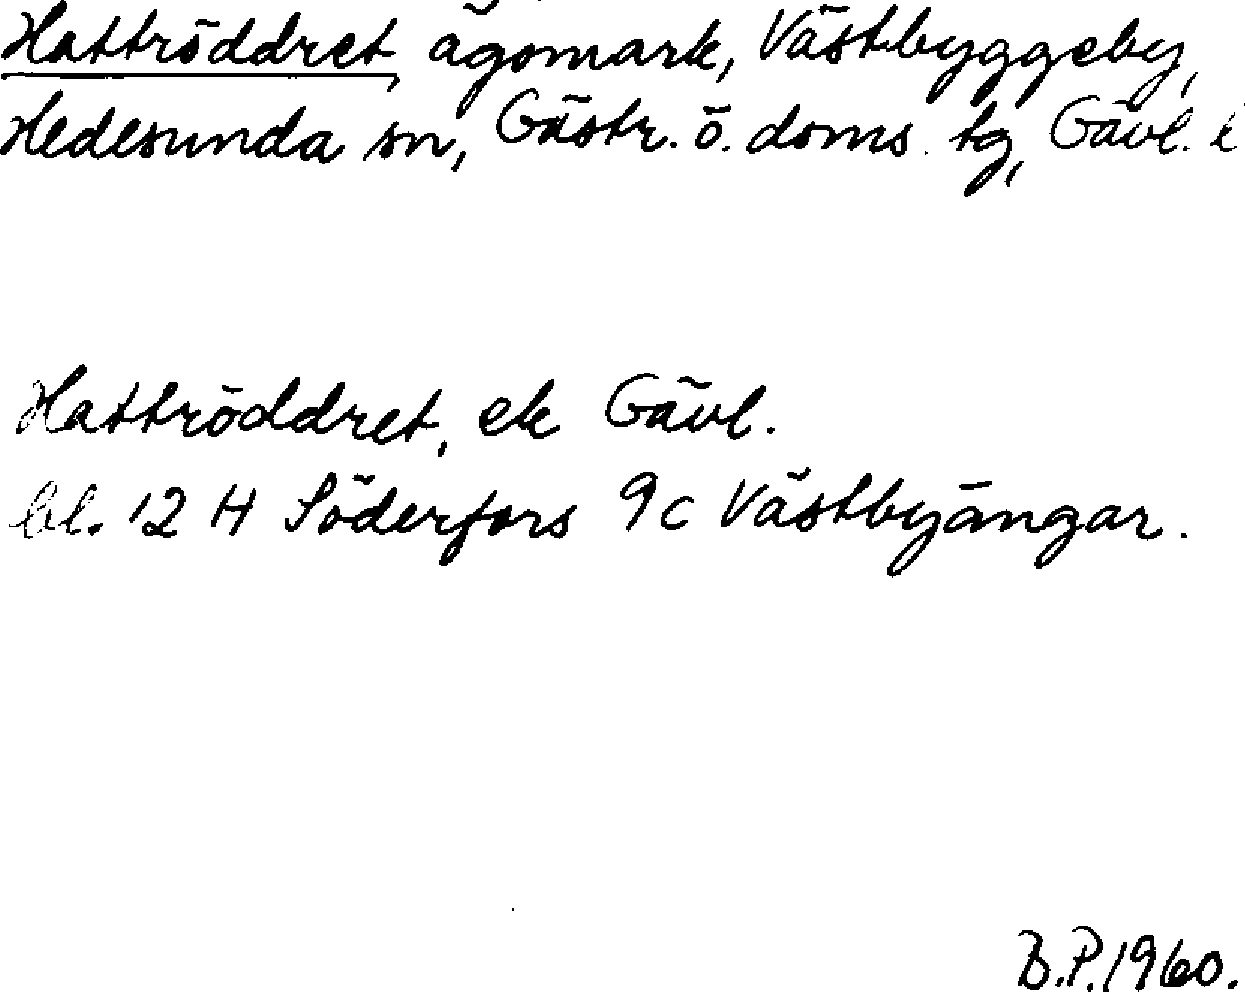 Hattröddret, ägomark, Västbyggeby,
Hedesunda sn, Gästr. ö. doms. tg, Gävl. l
Hattröddret, ek Gävl.
bl. 12 H Söderfors 9c Västbyängar.
B.P. 1960.